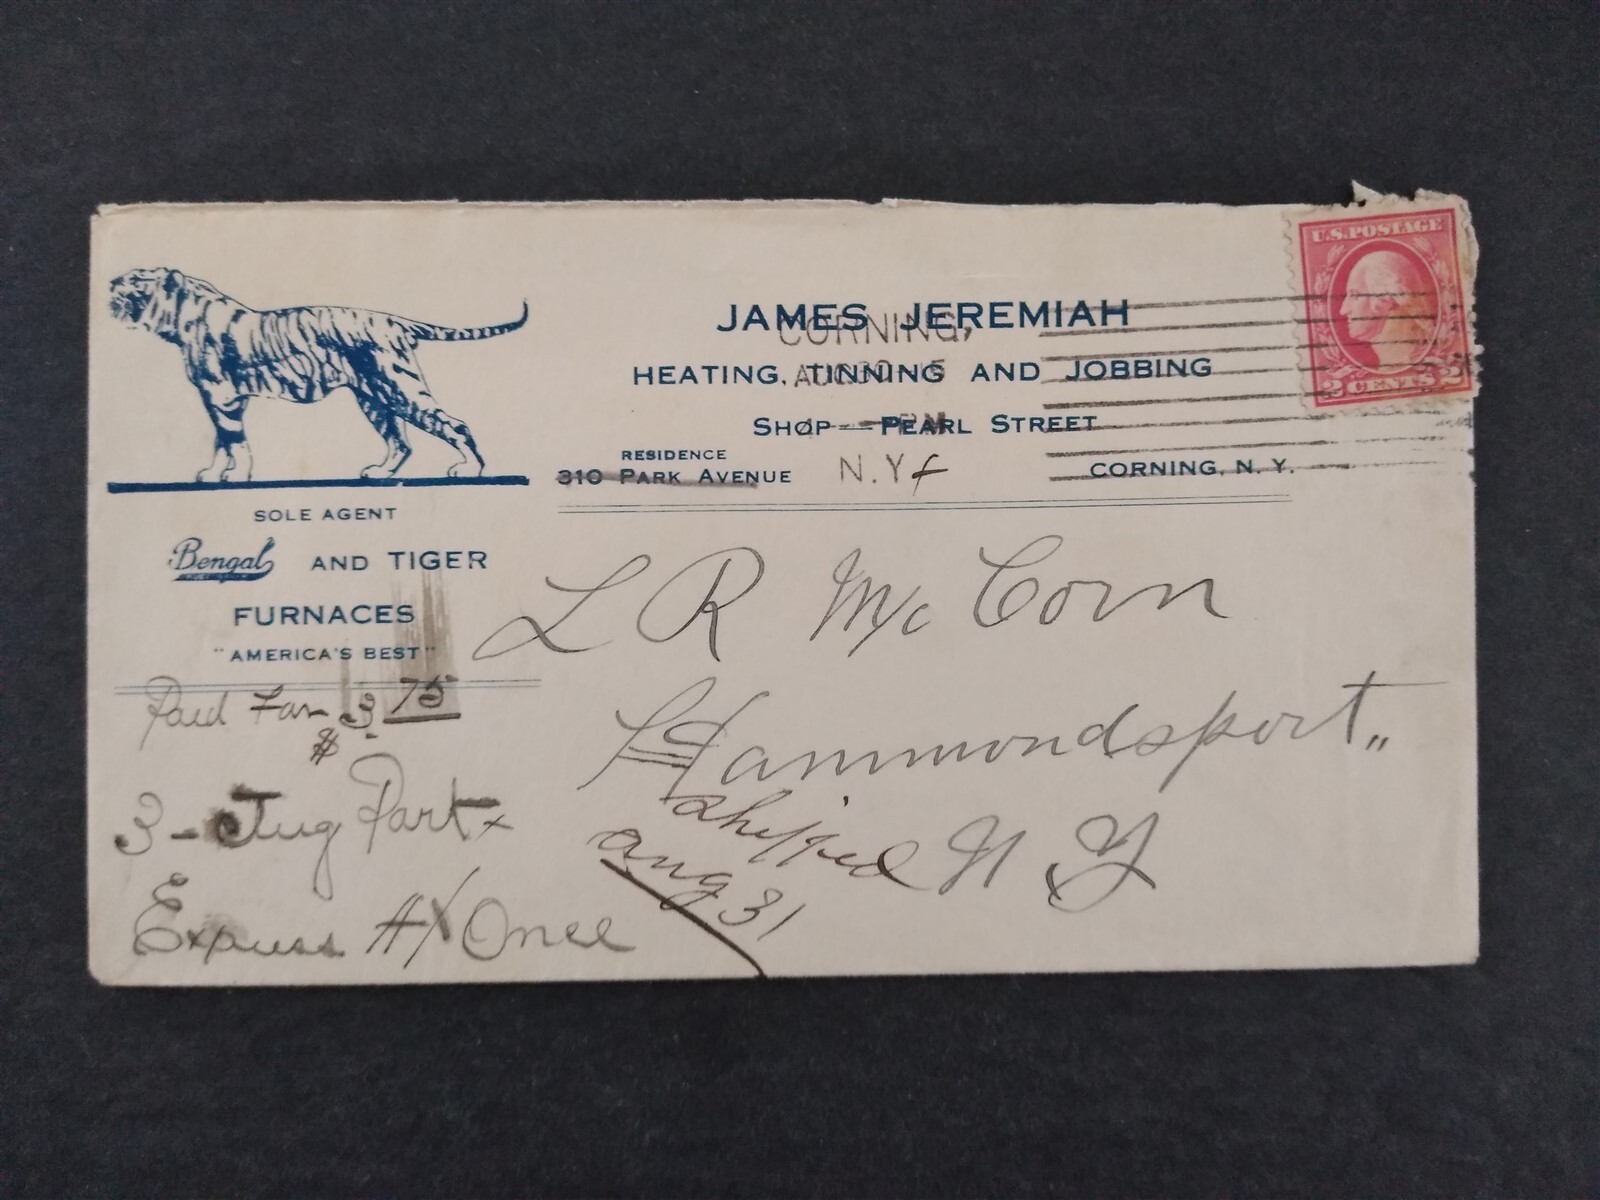 U.S. POSTAGE
2 CENTS 2
JAMES JEREMIAH
CORNING,
HEATING, TINNING AND JOBBING
AUG 30 15
SHOP — PEARL STREET
PM
RESIDENCE
310 PARK AVENUE
N.Y.
CORNING, N. Y.
SOLE AGENT
Bengal AND TIGER
FURNACES
"AMERICA'S BEST"
L R McCorn
Hammondsport,,
N Y
Paid For $3.75
3 - Jug Port
Express At Once
shipped
Aug 31